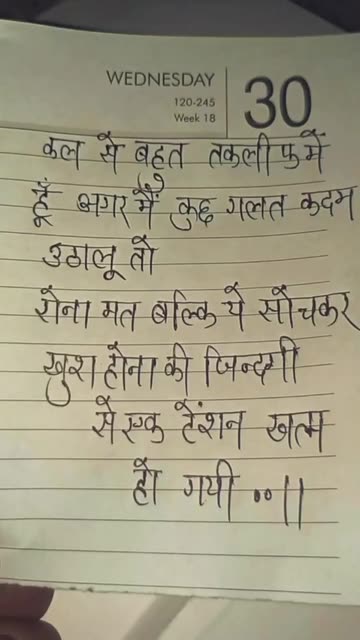 WEDNESDAY
120-245
Week 18
30
कल से बहुत तकलीफ में
हूँ अगर मैं कुछ गलत कदम
उठालू तो
रोना मत बल्कि ये सोचकर
खुश होना की जिन्दगी
से एक टेंशन खत्म
हो गयी ..||